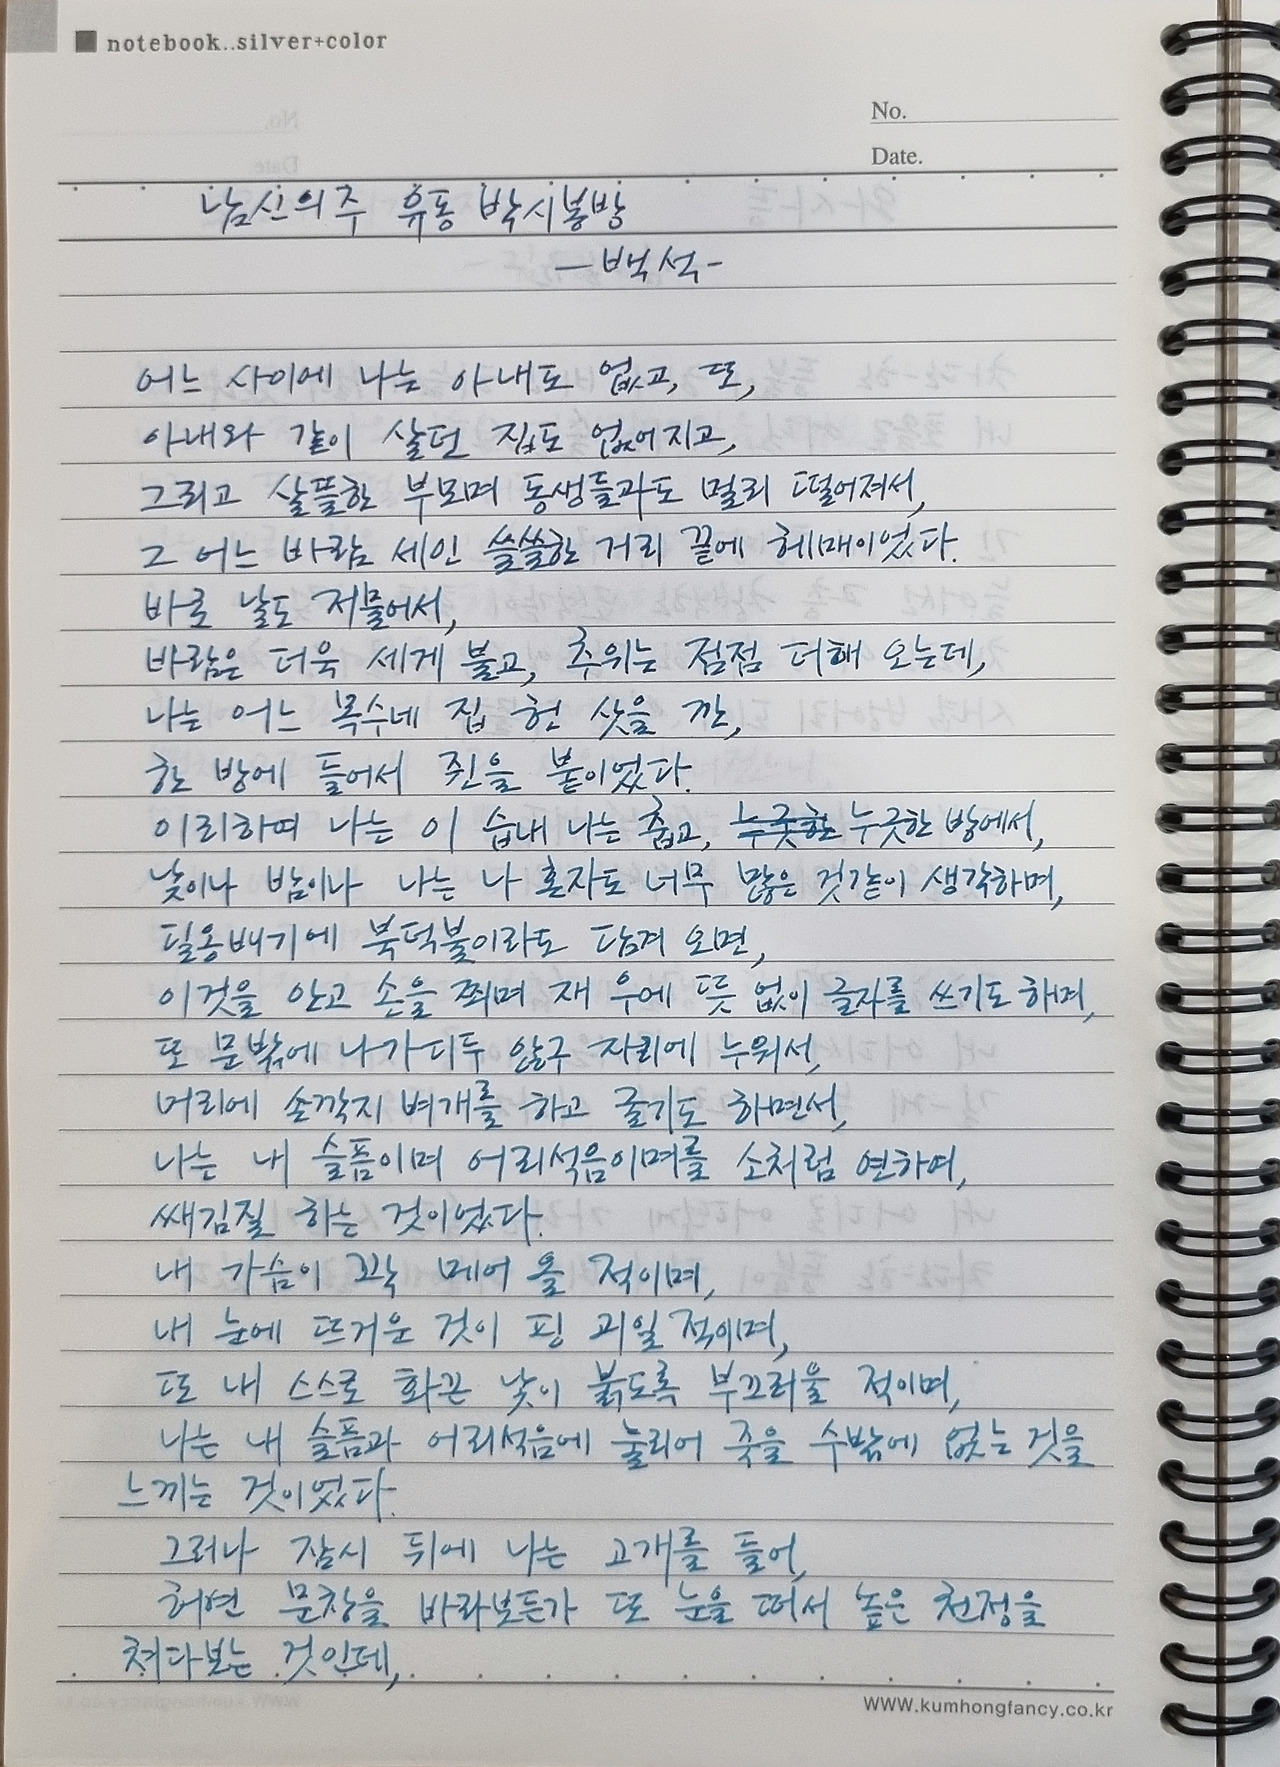 notebook..silver+color
No.
Date.
남신의주 유동 박시봉방
—백석-
어느 사이에 나는 아내도 없고, 또,
아내와 같이 살던 집도 없어지고,
그리고 살뜰한 부모며 동생들과도 멀리 떨어져서,
그 어느 바람 세인 쓸쓸한 거리 끝에 헤매이었다.
바로 날도 저물어서,
바람은 더욱 세게 불고, 추위는 점점 더해 오는데,
나는 어느 목수네 집 헌 삿을 깐,
한 방에 들어서 쥔을 붙이었다.
이리하여 나는 이 습내 나는 춥고, 누긋한 누긋한 방에서,
낮이나 밤이나 나는 나 혼자도 너무 많은 것같이 생각하며,
딜옹배기에 북덕불이라도 담겨 오면,
이것을 안고 손을 쬐며 재 우에 뜻 없이 글자를 쓰기도 하며,
또 문밖에 나가디두 않구 자리에 누워서,
머리에 손깍지 벼개를 하고 굴기도 하면서,
나는 내 슬픔이며 어리석음이며를 소처럼 연하여,
쌔김질 하는 것이었다.
내 가슴이 꽉 메어 올 적이며,
내 눈에 뜨거운 것이 핑 괴일 적이며,
또 내 스스로 화끈 낯이 붉도록 부끄러울 적이며,
나는 내 슬픔과 어리석음에 눌리어 죽을 수밖에 없는 것을
느끼는 것이었다.
그러나 잠시 뒤에 나는 고개를 들어,
허연 문창을 바라보든가 또 눈을 떠서 높은 천정을
쳐다보는 것인데,
WWW.kumhongfancy.co.kr